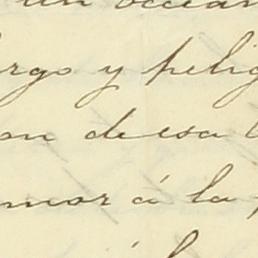 un ocean
argo y pelig
on de esa
mor á la